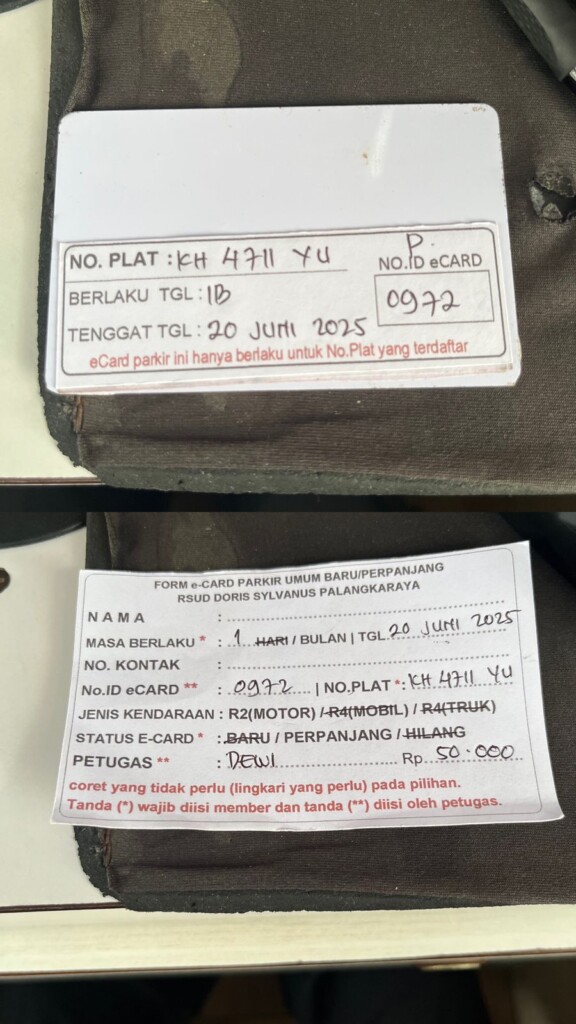 NO. PLAT : KH 4711 YU
P.
NO.ID eCARD
BERLAKU TGL : 1B
0972
TENGGAT TGL : 20 JUNI 2025
eCard parkir ini hanya berlaku untuk No.Plat yang terdaftar
FORM e-CARD PARKIR UMUM BARU/PERPANJANG
RSUD DORIS SYLVANUS PALANGKARAYA
N A M A :
MASA BERLAKU * : 1 HARI / BULAN | TGL. 20 JUNI 2025
NO. KONTAK :
No.ID eCARD ** : 0972 | NO.PLAT *: KH 4711 YU
JENIS KENDARAAN : R2(MOTOR) / R4(MOBIL) / R4(TRUK)
STATUS E-CARD * : BARU / PERPANJANG / HILANG
PETUGAS ** : DEWI Rp. 50.000
coret yang tidak perlu (lingkari yang perlu) pada pilihan.
Tanda (*) wajib diisi member dan tanda (**) diisi oleh petugas.